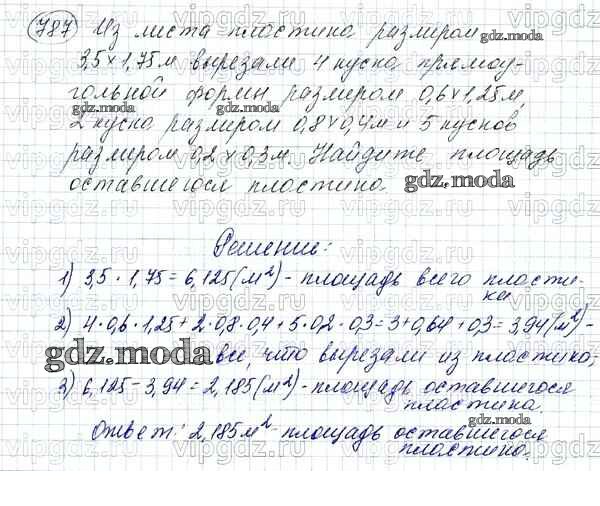 787) Из листа пластика размером
3,5 × 1,75 м вырезали 4 куска прямоу-
гольной формы размером 0,6 × 1,25 м,
2 куска размером 0,8 × 0,4 м и 5 кусков
размером 0,2 × 0,3 м. Найдите площадь
оставшегося пластика.
Решение:
1) 3,5 · 1,75 = 6,125 (м²) - площадь всего пласти-
ка
2) 4 · 0,6 · 1,25 + 2 · 0,8 · 0,4 + 5 · 0,2 · 0,3 = 3 + 0,64 + 0,3 = 3,94 (м²) -
все, что вырезали из пластика;
3) 6,125 - 3,94 = 2,185 (м²) - площадь оставшегося
пластика.
Ответ: 2,185 м² - площадь оставшегося
пластика.
gdz.moda
gdz.moda
gdz.moda
gdz.moda
vipgdz